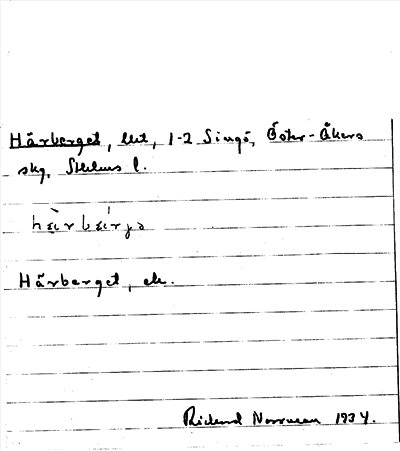 Härberget, 1-2 Singö, Öster-Åkers
skg, Sthlms l.
hàrbárja
Härberget, ek.
Rickard Norrman 1934.